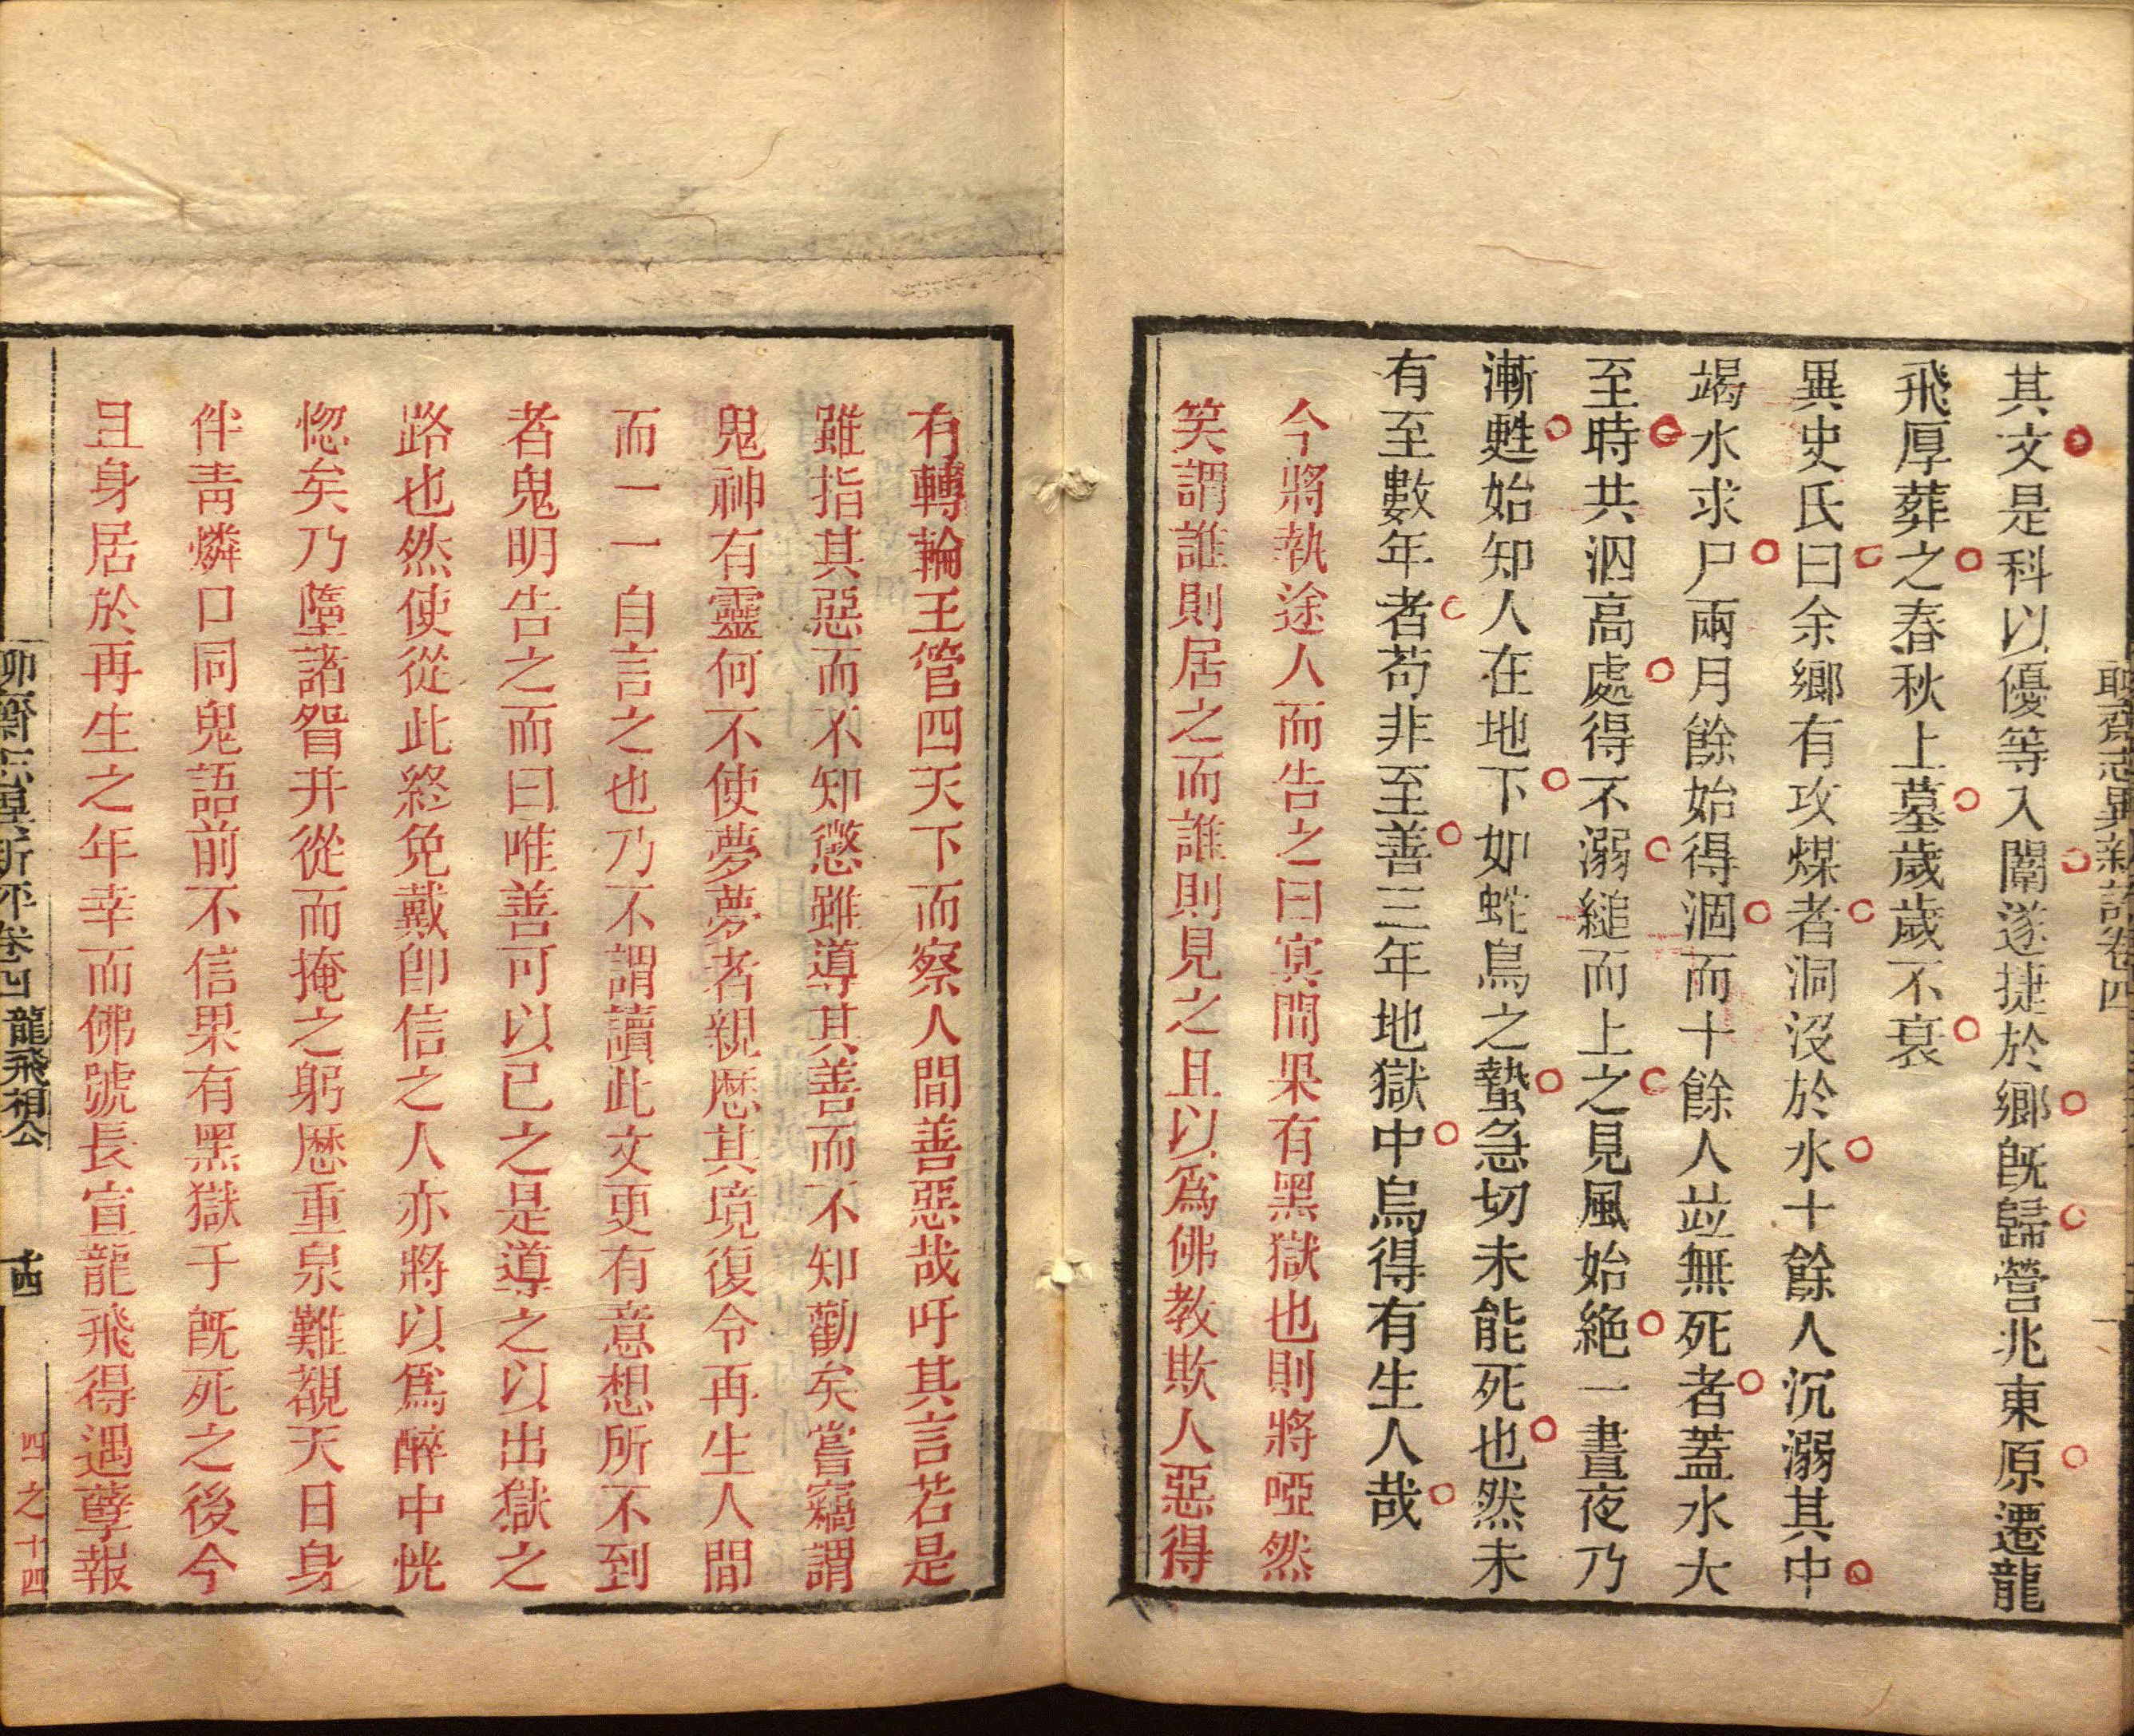 聊齋志異新評卷四
其文是科以優等入闈遂捷於鄉旣歸營兆東原遷龍
飛厚葬之春秋上墓歲歲不衰
異史氏曰余鄉有攻煤者洞沒於水十餘人沉溺其中
竭水求尸兩月餘始得涸而十餘人並無死者蓋水大
至時共泅高處得不溺縋而上之見風始絶一晝夜乃
漸甦始知人在地下如蛇鳥之蟄急切未能死也然未
有至數年者苟非至善三年地獄中烏得有生人哉
今將執途人而告之曰冥間果有黑獄也則將啞然
笑謂誰則居之而誰則見之且以爲佛教欺人惡得
有轉輪王管四天下而察人間善惡哉吁其言若是
雖指其惡而不知懲雖導其善而不知勸矣嘗竊謂
鬼神有靈何不使夢夢者親歷其境復令再生人間
而一一自言之也乃不謂讀此文更有意想所不到
者鬼明告之而曰唯善可以已之是導之以出獄之
路也然使從此終免戴卽信之人亦將以爲醉中恍
惚矣乃墮諸眢井從而掩之躬歷重泉難覩天日身
伴青燐口同鬼語前不信果有黑獄于旣死之後今
且身居於再生之年幸而佛號長宣龍飛得遇孽報
聊齋志異新評卷四 龍飛相公 十四
四之十四